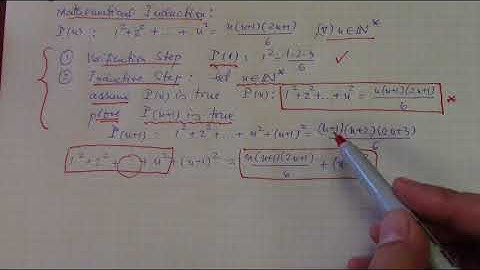 Mathematical Induction:
P(n): 1²+2²+ ... + n² = n(n+1)(2n+1)/6, (∀) n∈ℕ*
① Verification Step P(1): 1² = 1·2·3/6 ✓
② Inductive Step: let n∈ℕ*
assume P(n) is true P(n): 1²+2²+...+n² = n(n+1)(2n+1)/6 *
prove P(n+1) is true
P(n+1): 1²+2²+ ... + n²+(n+1)² = (n+1)(n+2)(2n+3)/6
1²+2²+ ... + n² + (n+1)² = n(n+1)(2n+1)/6 + (